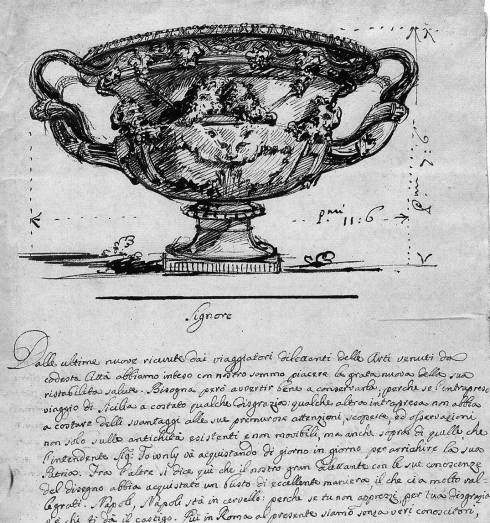 pmi 7:6
pmi 11:6
Signore
Dalle ultime nuove ricivute dai viaggiatori dilettanti delle Arti venuti da
codesta Città abbiamo inteso con nostro sommo piacere la grata nuova della sua
ristabilita salute. Bisogna però avvertir bene a conservarla; perche se l'intrapreso
viaggio di Sicilia a costato qualche disgrazia; qualche altra intrapresa non abbia
a costare delli svantaggi alle sue premurose attenzioni, scoperte, ed osservazioni
non solo sulle antichità esistenti e non mobili, ma anche sopra di quelle, che
l'intendente Sigr. Townly và acquistando di giorno in giorno per arrichire la sua
Patria. Tra l'altre si dice quì che il nostro gran dilettante con le sue conoscenze
del disegno abbia acquistato un busto di eccellente maniera il che ci a molto ral-
legrati. Napoli, Napoli stà in cervello: perche se tu non apprezi, per tua disgrazia
che ti dà il castigo. Quì in Roma al presente siamo senza veri conoscitori,